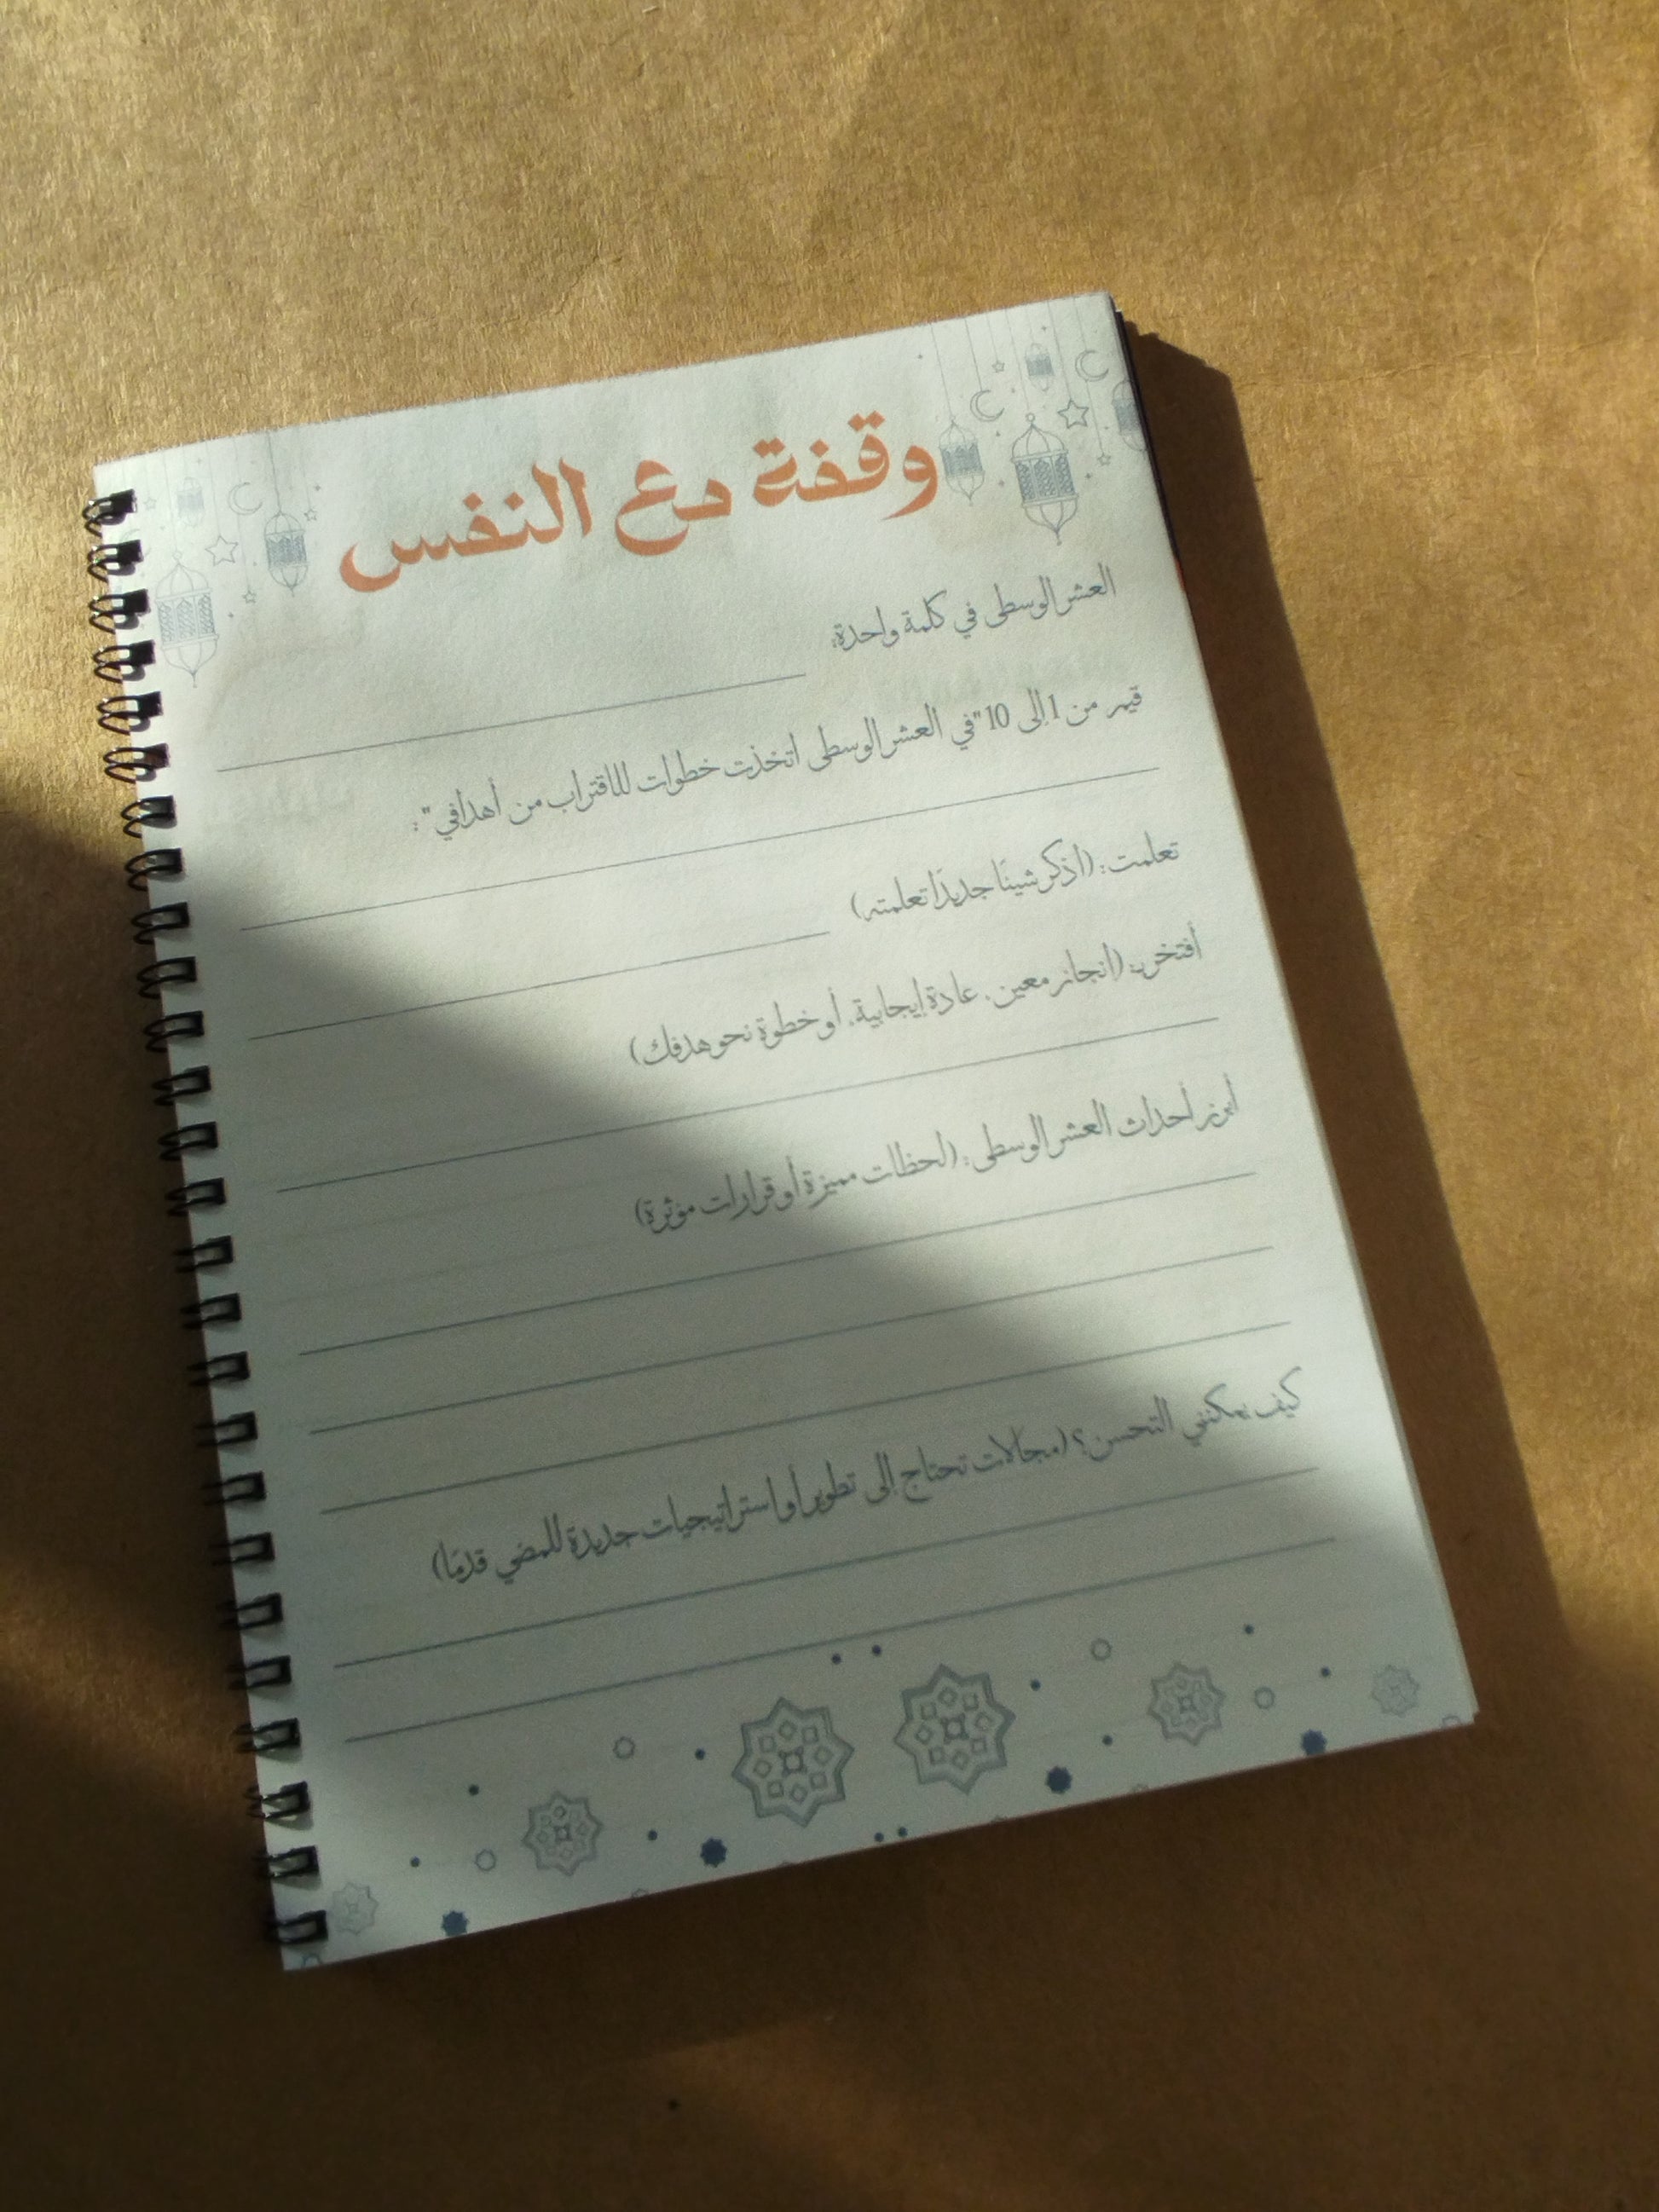 وقفة مع النفس
العشر الوسطى في كلمة واحدة:
قيم من 1 إلى 10 "في العشر الوسطى اتخذت خطوات للاقتراب من أهدافي":
تعلمت: (اذكر شيئًا جديدًا تعلمته)
أفتخر بـ: (انجاز معين، عادة إيجابية، أو خطوة نحو هدفك)
أبرز أحداث العشر الوسطى: (لحظات مميزة أو قرارات مؤثرة)
كيف يمكنني التحسن؟ (مجالات تحتاج إلى تطوير أو استراتيجيات جديدة للمضي قدمًا)